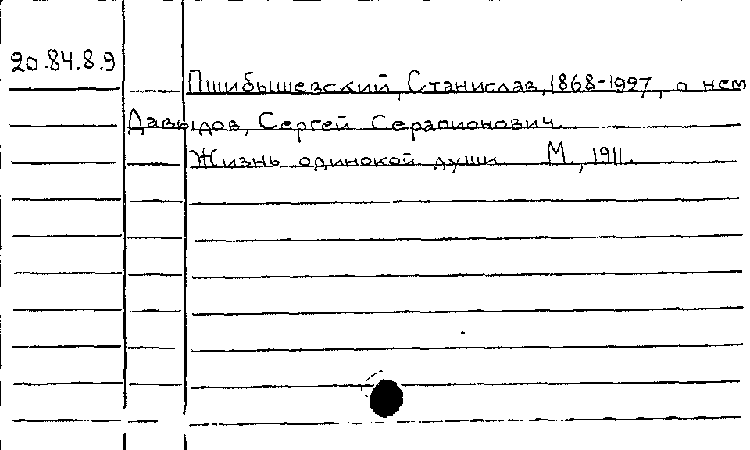 20.84.8.9
Пшибышевский, Станислав, 1868-1927, о нем
Давыдов, Сергей Серапионович.
Жизнь одинокой души М., 1911.